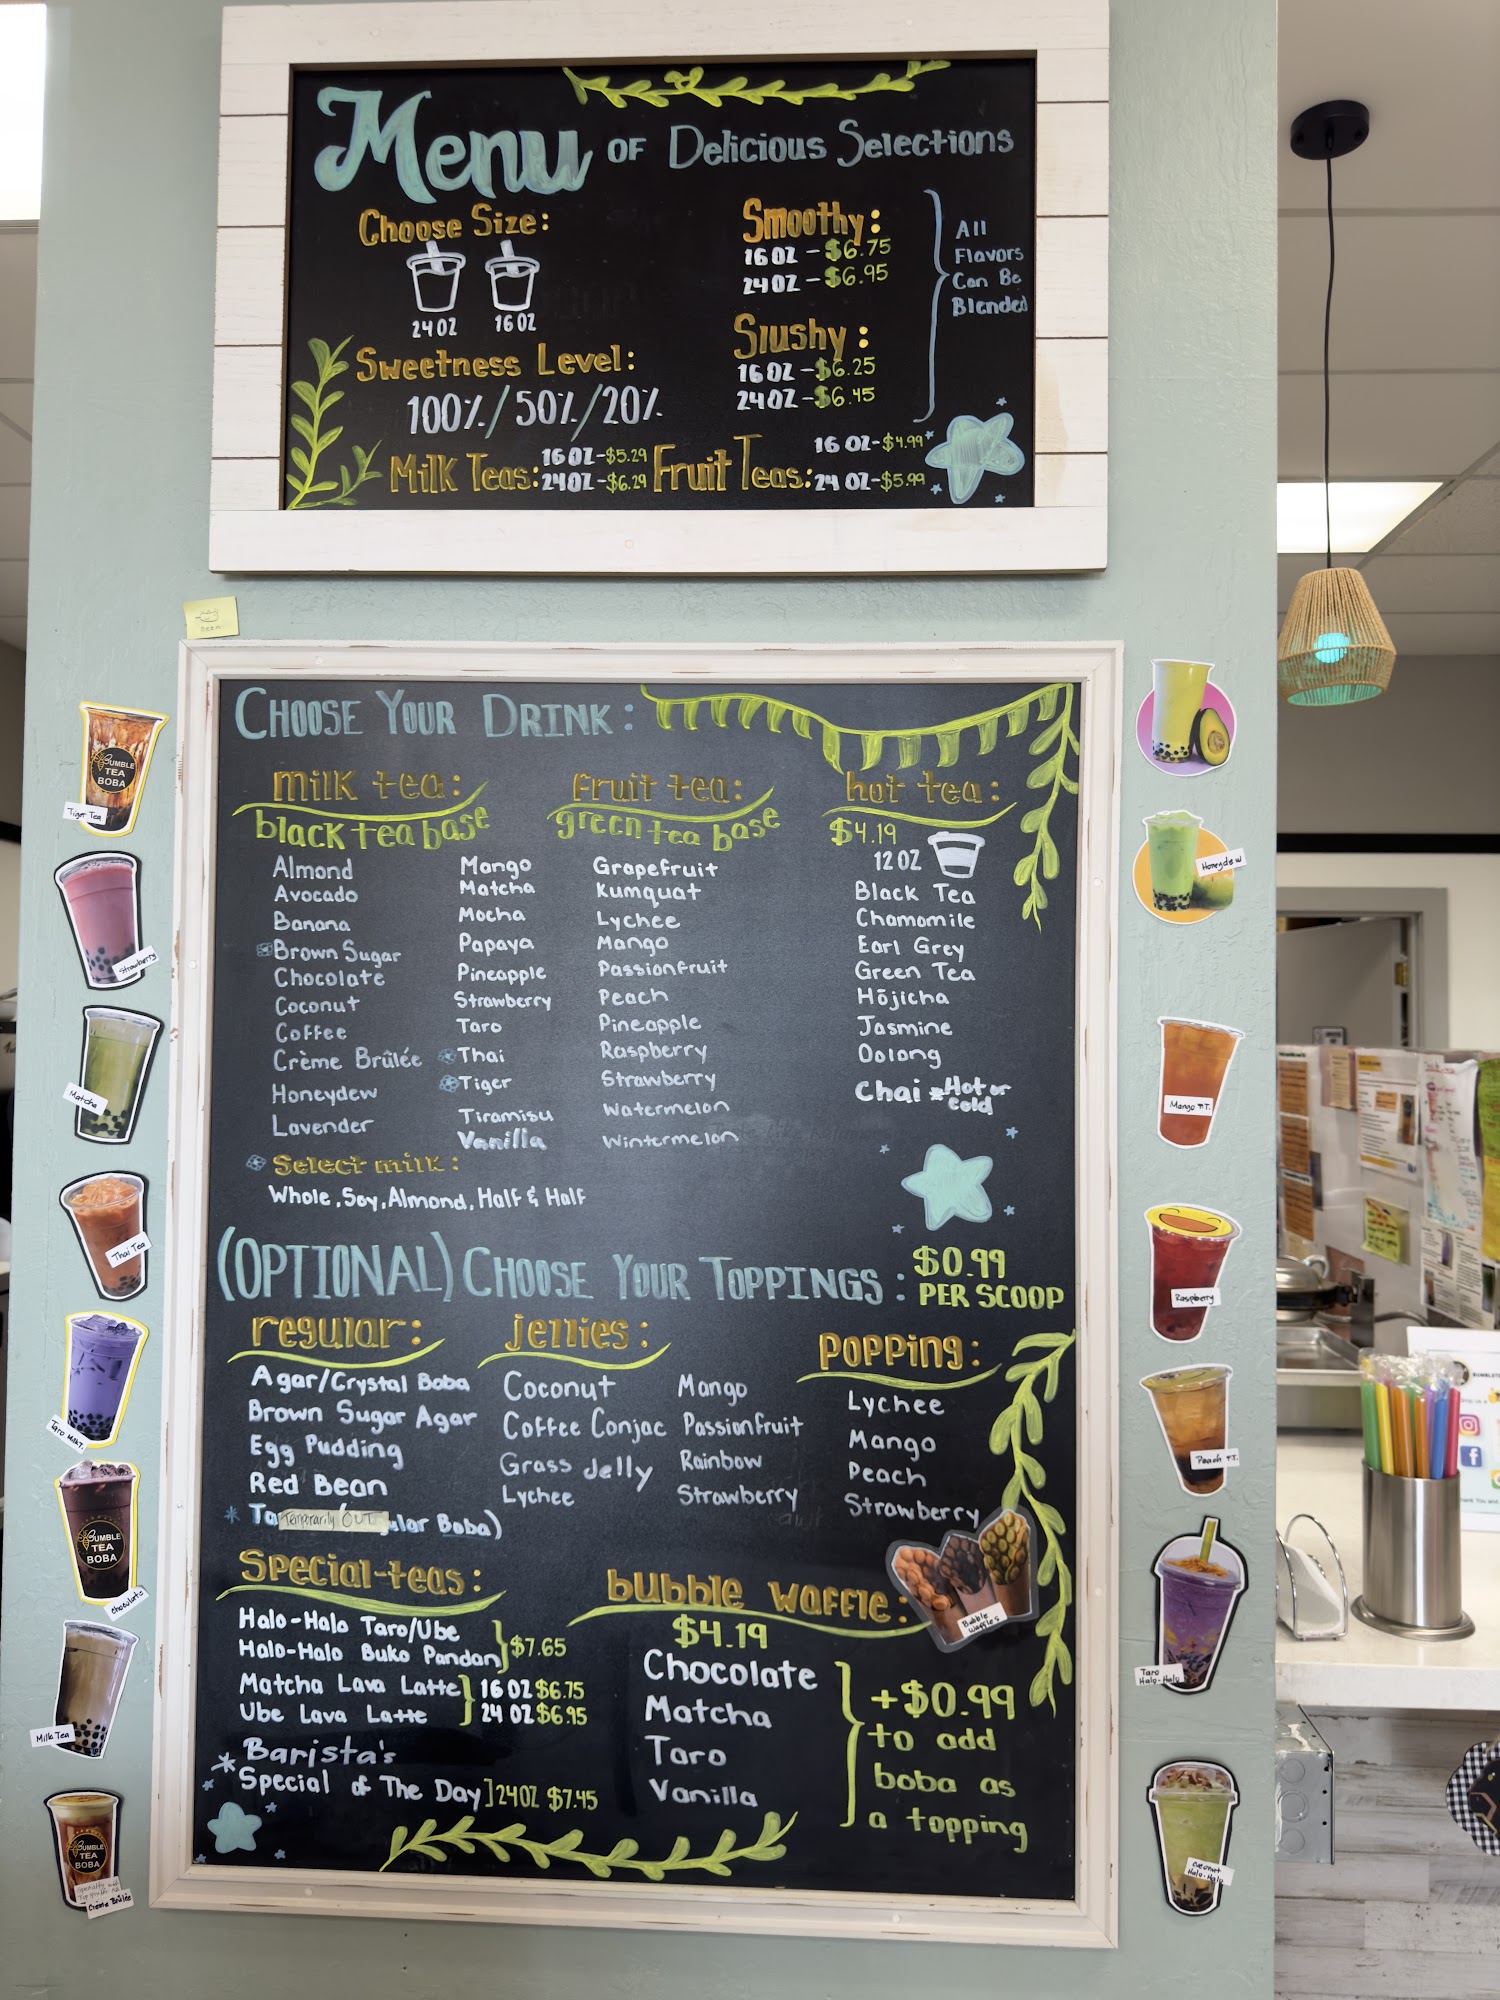 Menu OF Delicious Selections
Choose Size:
24 OZ 16 OZ
Sweetness Level:
100%/50%/20%
Milk Teas: 16 OZ-$5.29
24 OZ-$6.29
Fruit Teas: 16 OZ-$4.99
24 OZ-$5.99
Smoothy:
16 OZ-$6.75
24 OZ-$6.95
Slushy:
16 OZ-$6.25
24 OZ-$6.45
All
Flavors
Can Be
Blended
BEEN
CHOOSE YOUR DRINK:
milk tea:
black tea base
Almond
Avocado
Banana
Brown Sugar
Chocolate
Coconut
Coffee
Crème Brûlée
Honeydew
Lavender
Mango
Matcha
Mocha
Papaya
Pineapple
Strawberry
Taro
Thai
Tiger
Tiramisu
Vanilla
Select milk:
Whole, Soy, Almond, Half & Half
Fruit tea:
green tea base
Grapefruit
Kumquat
Lychee
Mango
Passionfruit
Peach
Pineapple
Raspberry
Strawberry
Watermelon
Wintermelon
hot tea:
$4.19
12 OZ
Black Tea
Chamomile
Earl Grey
Green Tea
Hōjicha
Jasmine
Oolong
Chai *Hot or
Cold
(OPTIONAL) CHOOSE YOUR TOPPINGS: $0.99
PER SCOOP
regular:
Agar/Crystal Boba
Brown Sugar Agar
Egg Pudding
Red Bean
* Ta Temporarily OUT ular Boba)
jellies:
Coconut
Coffee Conjac
Grass Jelly
Lychee
Mango
Passionfruit
Rainbow
Strawberry
Popping:
Lychee
Mango
Peach
Strawberry
Special-teas:
Halo-Halo Taro/Ube
Halo-Halo Buko Pandan
$7.65
Matcha Lava Latte
Ube Lava Latte
16 OZ $6.75
24 OZ $6.95
* Barista's
Special of The Day] 24OZ $7.45
bubble waffle:
$4.19
Chocolate
Matcha
Taro
Vanilla
+$0.99
to add
boba as
a topping
Bubble
Waffles
BUMBLE
TEA
BOBA
Tiger Tea
Strawberry
Matcha
Thai Tea
Taro Milk T.
BUMBLE
TEA
BOBA
Chocolate
Milk Tea
BUMBLE
TEA
BOBA
Crème Brûlée
Honeydew
Mango F.T.
Raspberry
Peach F.T.
Taro
Halo-Halo
Coconut
Halo-Halo